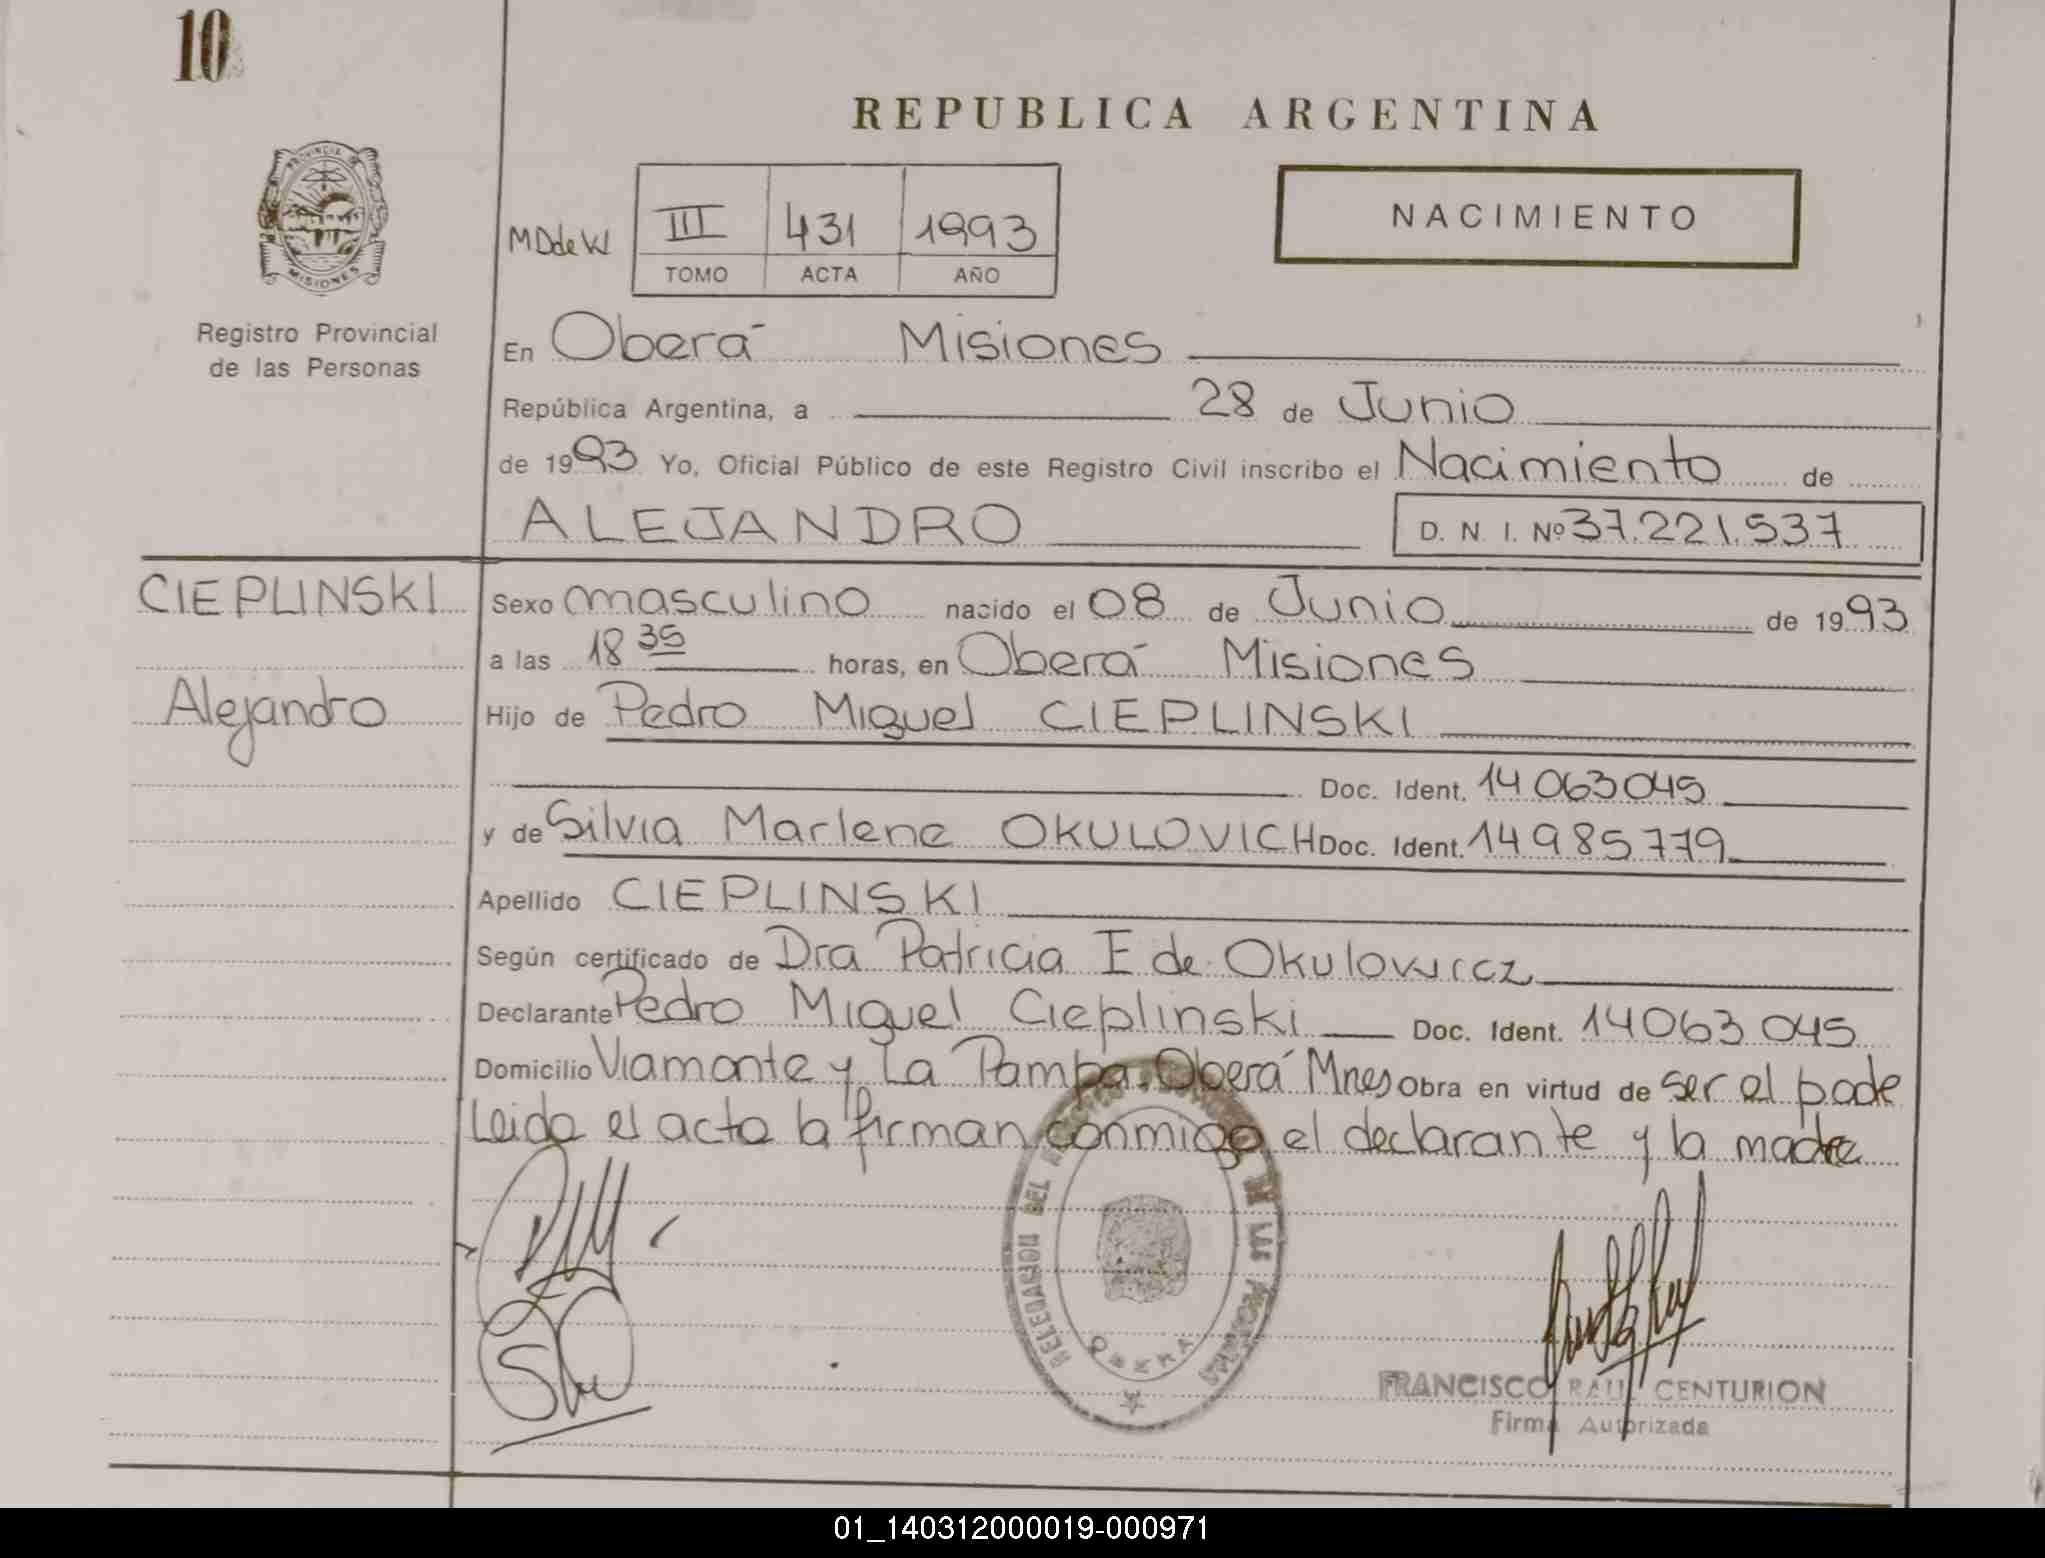 10
REPUBLICA ARGENTINA
PROVINCIA DE
MISIONES
Registro Provincial
de las Personas
III 431 1993
TOMO ACTA AÑO
NACIMIENTO
En Oberá Misiones
República Argentina, a 28 de Junio
de 1993 Yo, Oficial Público de este Registro Civil inscribo el Nacimiento de
ALEJANDRO D. N. I. Nº 37.221.537
CIEPLINSKI
Alejandro
Sexo masculino nacido el 08 de Junio de 1993
a las 18 35 horas, en Oberá Misiones
Hijo de Pedro Miguel CIEPLINSKI
Doc. Ident. 14 063 045
y de Silvia Marlene OKULOVICH Doc. Ident. 14985779
Apellido CIEPLINSKI
Según certificado de Dra Patricia E de Okulowicz
Declarante Pedro Miguel Cieplinski Doc. Ident. 14063 045
Domicilio Viamonte y La Pampa. Oberá Mnes Obra en virtud de ser el padre
Leida el acta la firman conmigo el declarante y la madre
DELEGADO DEL REGISTRO DE LAS PERSONAS
OBERA
FRANCISCO RAUL CENTURION
Firma Autorizada
01_140312000019-000971